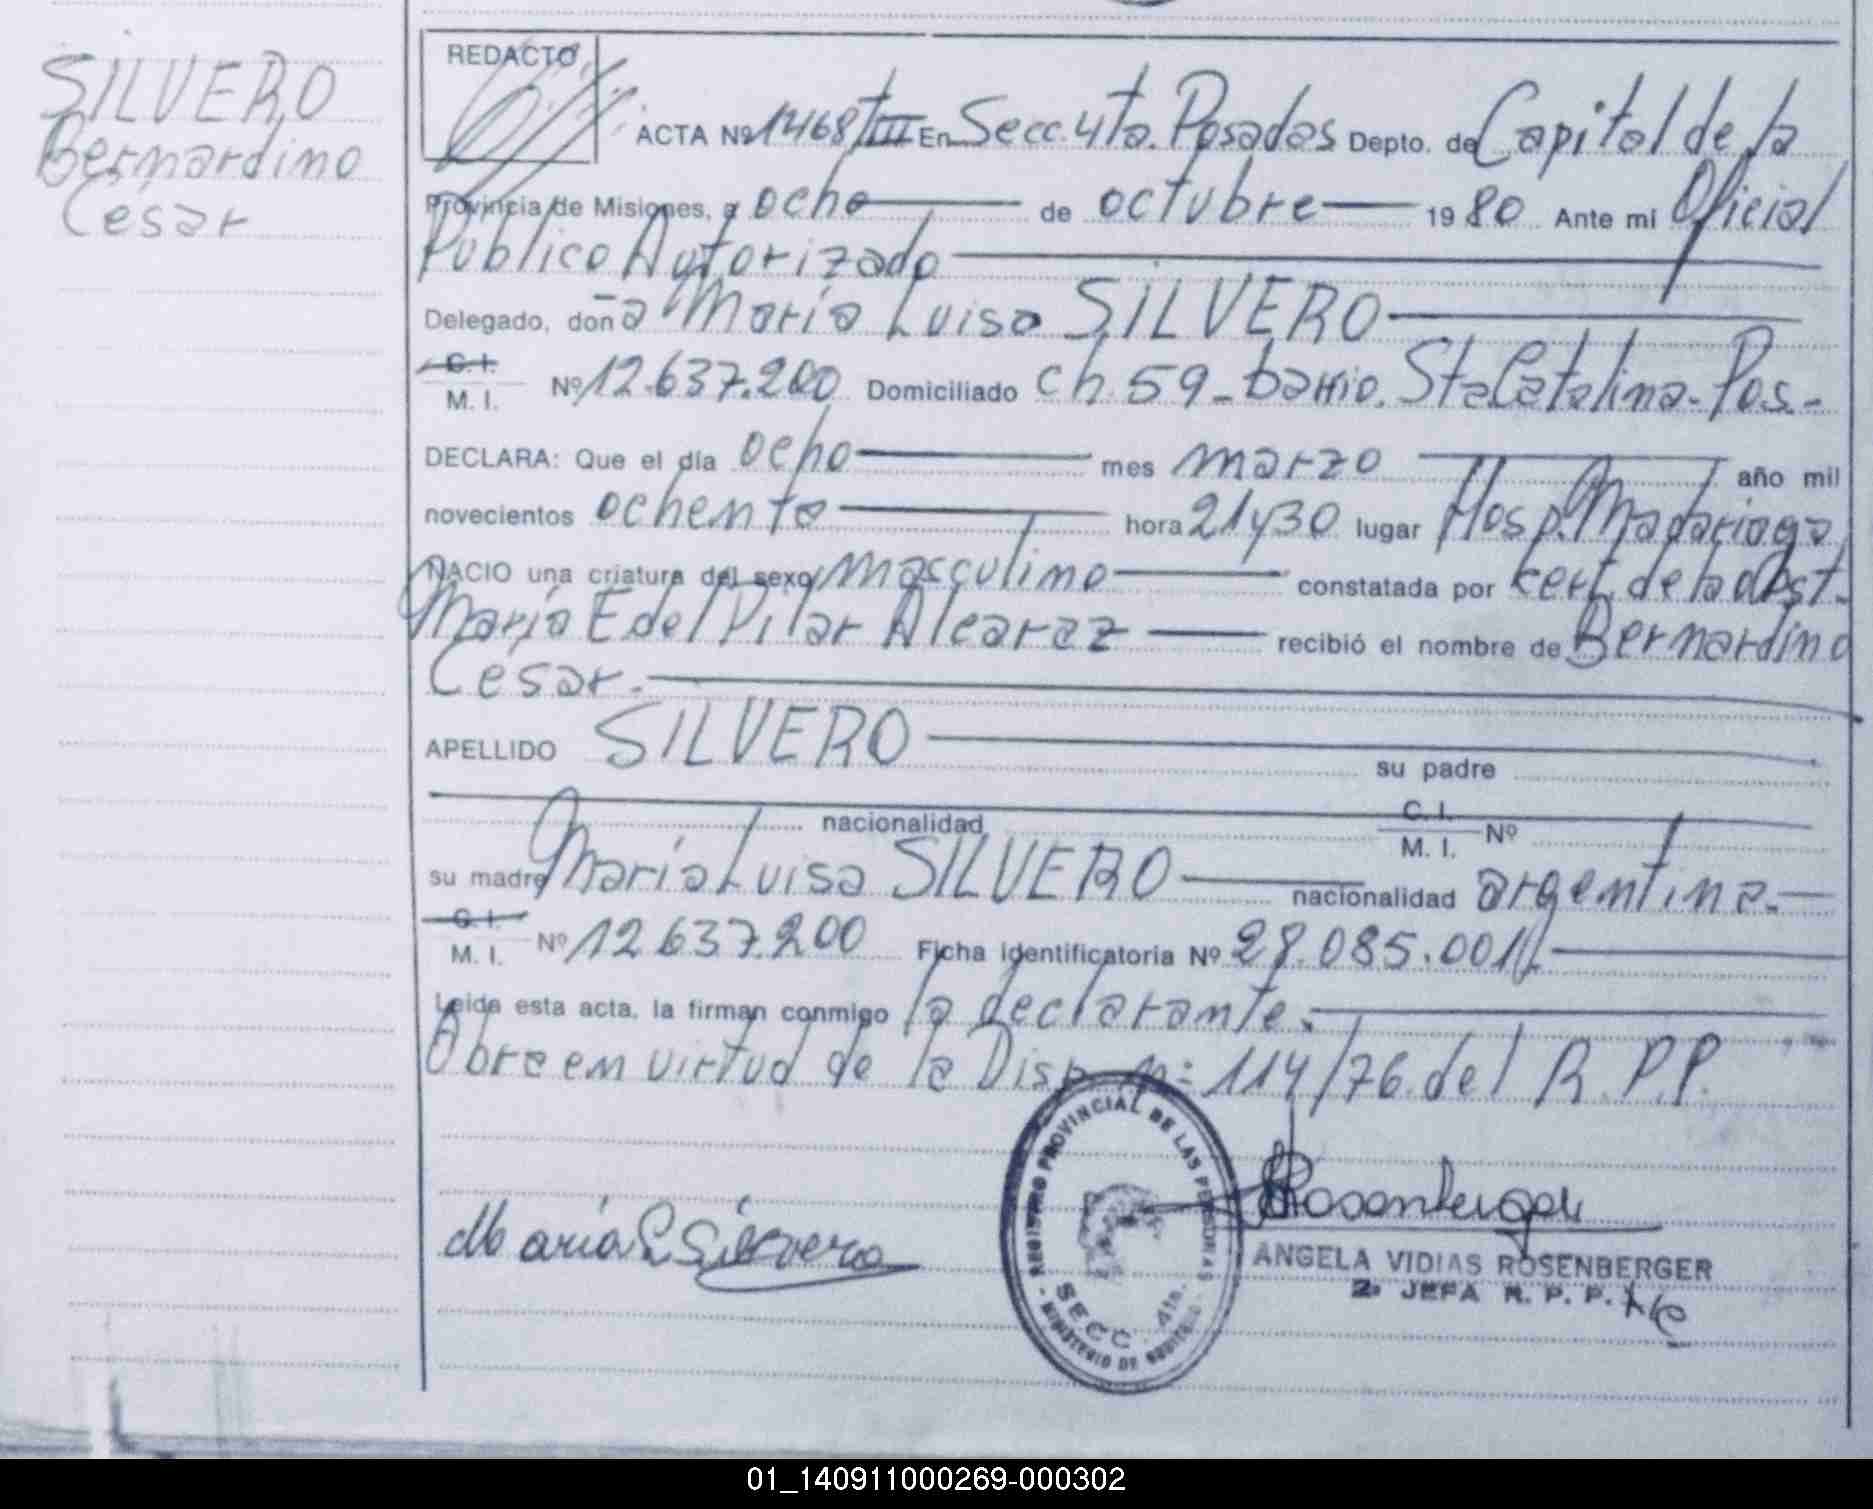 SILVERO
Bernardino
Cesar
REDACTO
ACTA Nº 1468/TIII En Secc. 4ta. Posadas Depto. de Capital de la
Provincia de Misiones, a ocho de octubre 1980 Ante mi Oficial
Público Autorizado
Delegado, doña María Luisa SILVERO
C. I.
M. I. Nº 12.637.200 Domiciliado ch. 59_barrio. Sta Catalina-Pos.-
DECLARA: Que el día ocho mes marzo año mil
novecientos ochenta hora 21y30 lugar Hosp. Madariaga
NACIO una criatura del sexo masculino constatada por cert. de la obst.
María E del Pilar Alcaraz recibió el nombre de Bernardino
Cesar.
APELLIDO SILVERO su padre
nacionalidad C. I. M. I. Nº
su madre María Luisa SILVERO nacionalidad argentina.
C. I.
M. I. Nº 12.637.200 Ficha identificatoria Nº 28.085.001
Leida esta acta, la firman conmigo la declarante.
Obre en virtud de la Disp. nº: 114/76. del R.P.P.
REGISTRO PROVINCIAL DE LAS PERSONAS
SECC. 4ta.
MINISTERIO DE GOBIERNO
María L Silvero
Rosenberger
ANGELA VIDIAS ROSENBERGER
2ª JEFA R. P. P.
01_140911000269-000302